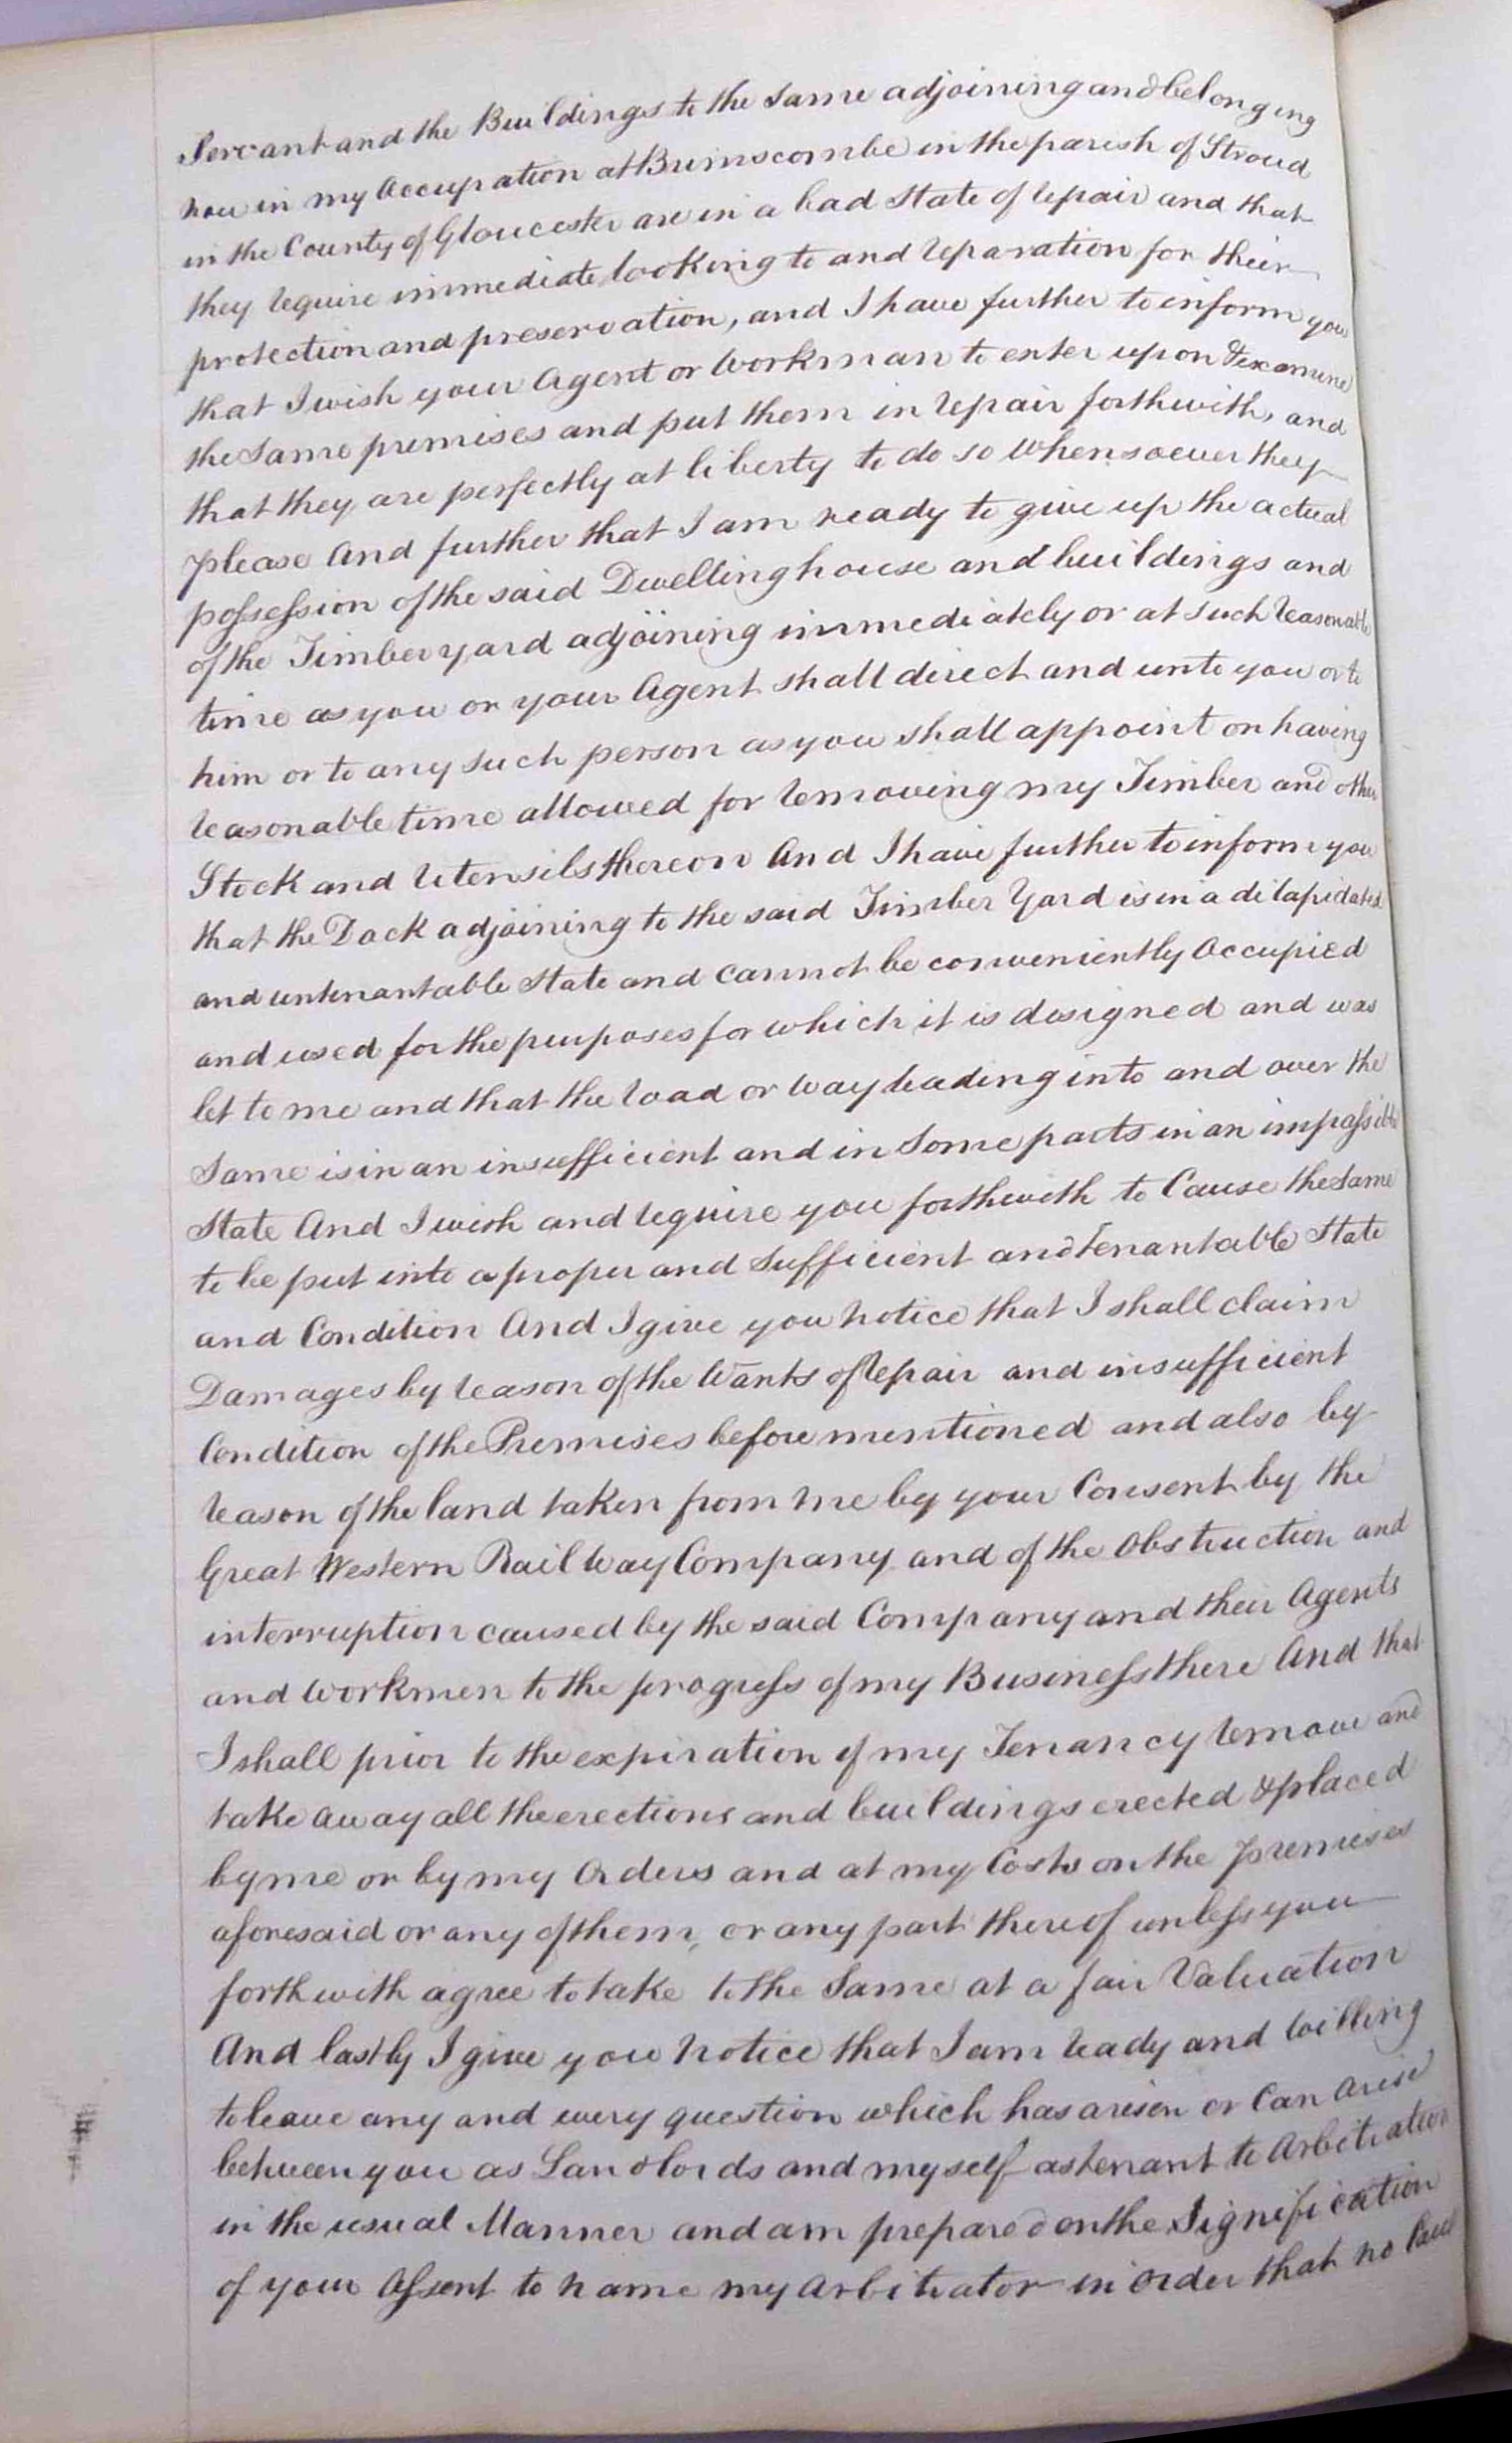 Servant and the Buildings to the Same adjoining and belonging
now in my Occupation at Brimscombe in the parish of Stroud
in the County of Gloucester are in a bad State of repair and that
they require immediate looking to and reparation for their
protection and preservation, and I have further to inform you
that I wish your Agent or Workman to enter upon & examine
the Same premises and put them in repair forthwith, and
that they are perfectly at liberty to do so Whensoever they
please And further that I am ready to give up the actual
possession of the said Dwelling house and buildings and
of the Timber yard adjoining immediately or at such reasonable
time as you or your Agent shall direct and unto you or to
him or to any such person as you shall appoint on having
reasonable time allowed for removing my Timber and other
Stock and Utensils thereon And I have further to inform you
that the Dock adjoining to the said Timber Yard is in a dilapidated
and untenantable State and cannot be conveniently Occupied
and used for the purposes for which it is designed and was
let to me and that the road or way leading into and over the
Same is in an insufficient and in Some parts in an impassible
State And I wish and require you forthwith to Cause the Same
to be put into a proper and Sufficient and tenantable State
and Condition And I give you Notice that I shall claim
Damages by reason of the Wants of repair and insufficient
Condition of the Premises before mentioned and also by
reason of the land taken from me by your Consent by the
Great Western Railway Company and of the Obstruction and
interruption caused by the said Company and their Agents
and Workmen to the progress of my Business there And that
I shall prior to the expiration of my Tenancy remove and
take away all the erections and buildings erected & placed
by me or by my Orders and at my Costs on the premises
aforesaid or any of them, or any part thereof unless you
forthwith agree to take to the Same at a fair Valuation
And lastly I give you Notice that I am ready and willing
to leave any and every question which has arisen or Can arise
between you as Landlords and myself as tenant to Arbitration
in the usual Manner and am prepared on the Signification
of your Assent to Name my Arbitrator in Order that no